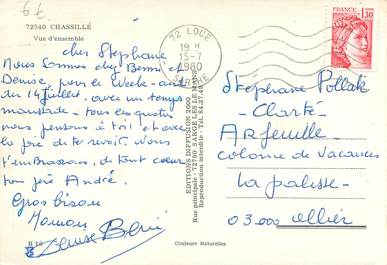 6€
72540 CHASSILLÉ
Vue d'ensemble
72 LOUE
19 H
15-7
1980
SARTHE
FRANCE
1,30
cher Stephane
Nous sommes chez Bernie et
Denise, pour le Week-end
du 14 Juillet. avec un temps
maussade. tous les quatre
nous pensons à toi et avec
la joie de te revoir. Nous
t'embrassons, de tout coeur
ton père André.
Gros bisous
Maman
Denise Berni
B 16
EDITIONS REFFUVEON
Rue principale - 72190 SARGÉ LES LE MANS
Reproductions interdites - Tél.
Couleurs Naturelles
Stephane Pollak
Clarté
Arfeuille
colonie de Vacances
La palisse
03.000 Allier